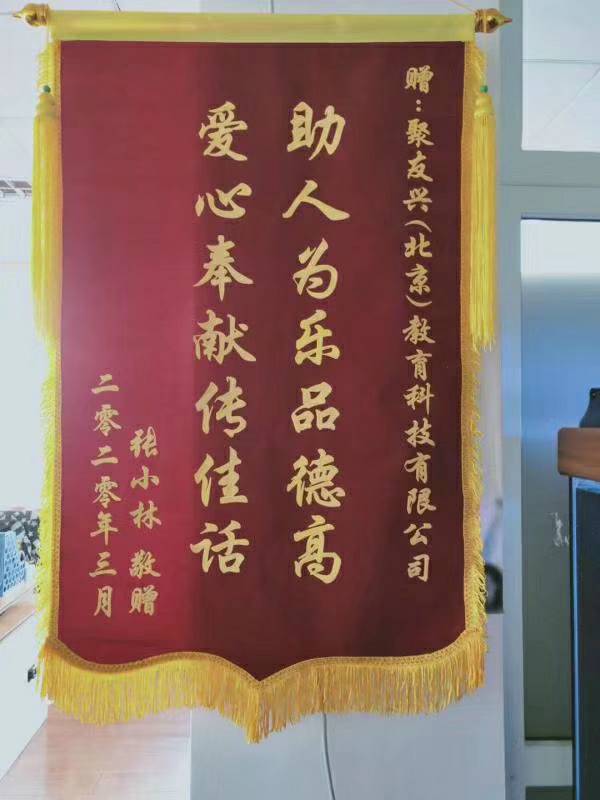 赠：聚友兴（北京）教育科技有限公司
助人为乐品德高
爱心奉献传佳话
张小林 敬赠
二零二零年三月